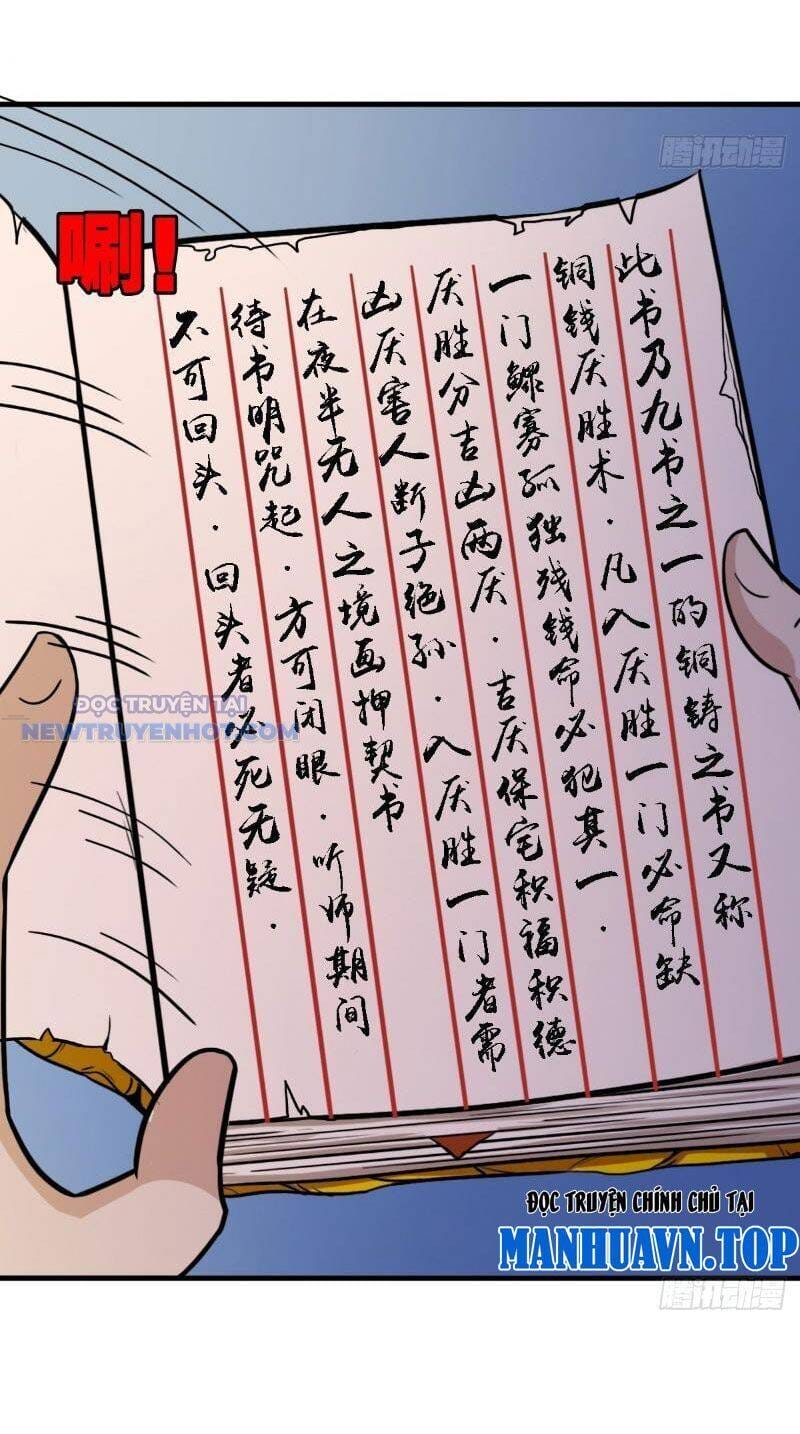 腾讯动漫
唰!
此书乃九书之一的铜铸之书又称
铜钱厌胜术.凡入厌胜一门必命缺
一门鳏寡孤独残钱命必犯其一.
厌胜分吉凶两厌.吉厌保宅积福积德
凶厌害人断子绝孙.入厌胜一门者需
在夜半无人之境画押契书
待书明咒起.方可闭眼.听师期间
不可回头.回头者必死无疑.
ĐỌC TRUYỆN TẠI
NEWTRUYENHOT.COM
ĐỌC TRUYỆN CHÍNH CHỦ TẠI
MANHUAVN.TOP
腾讯动漫